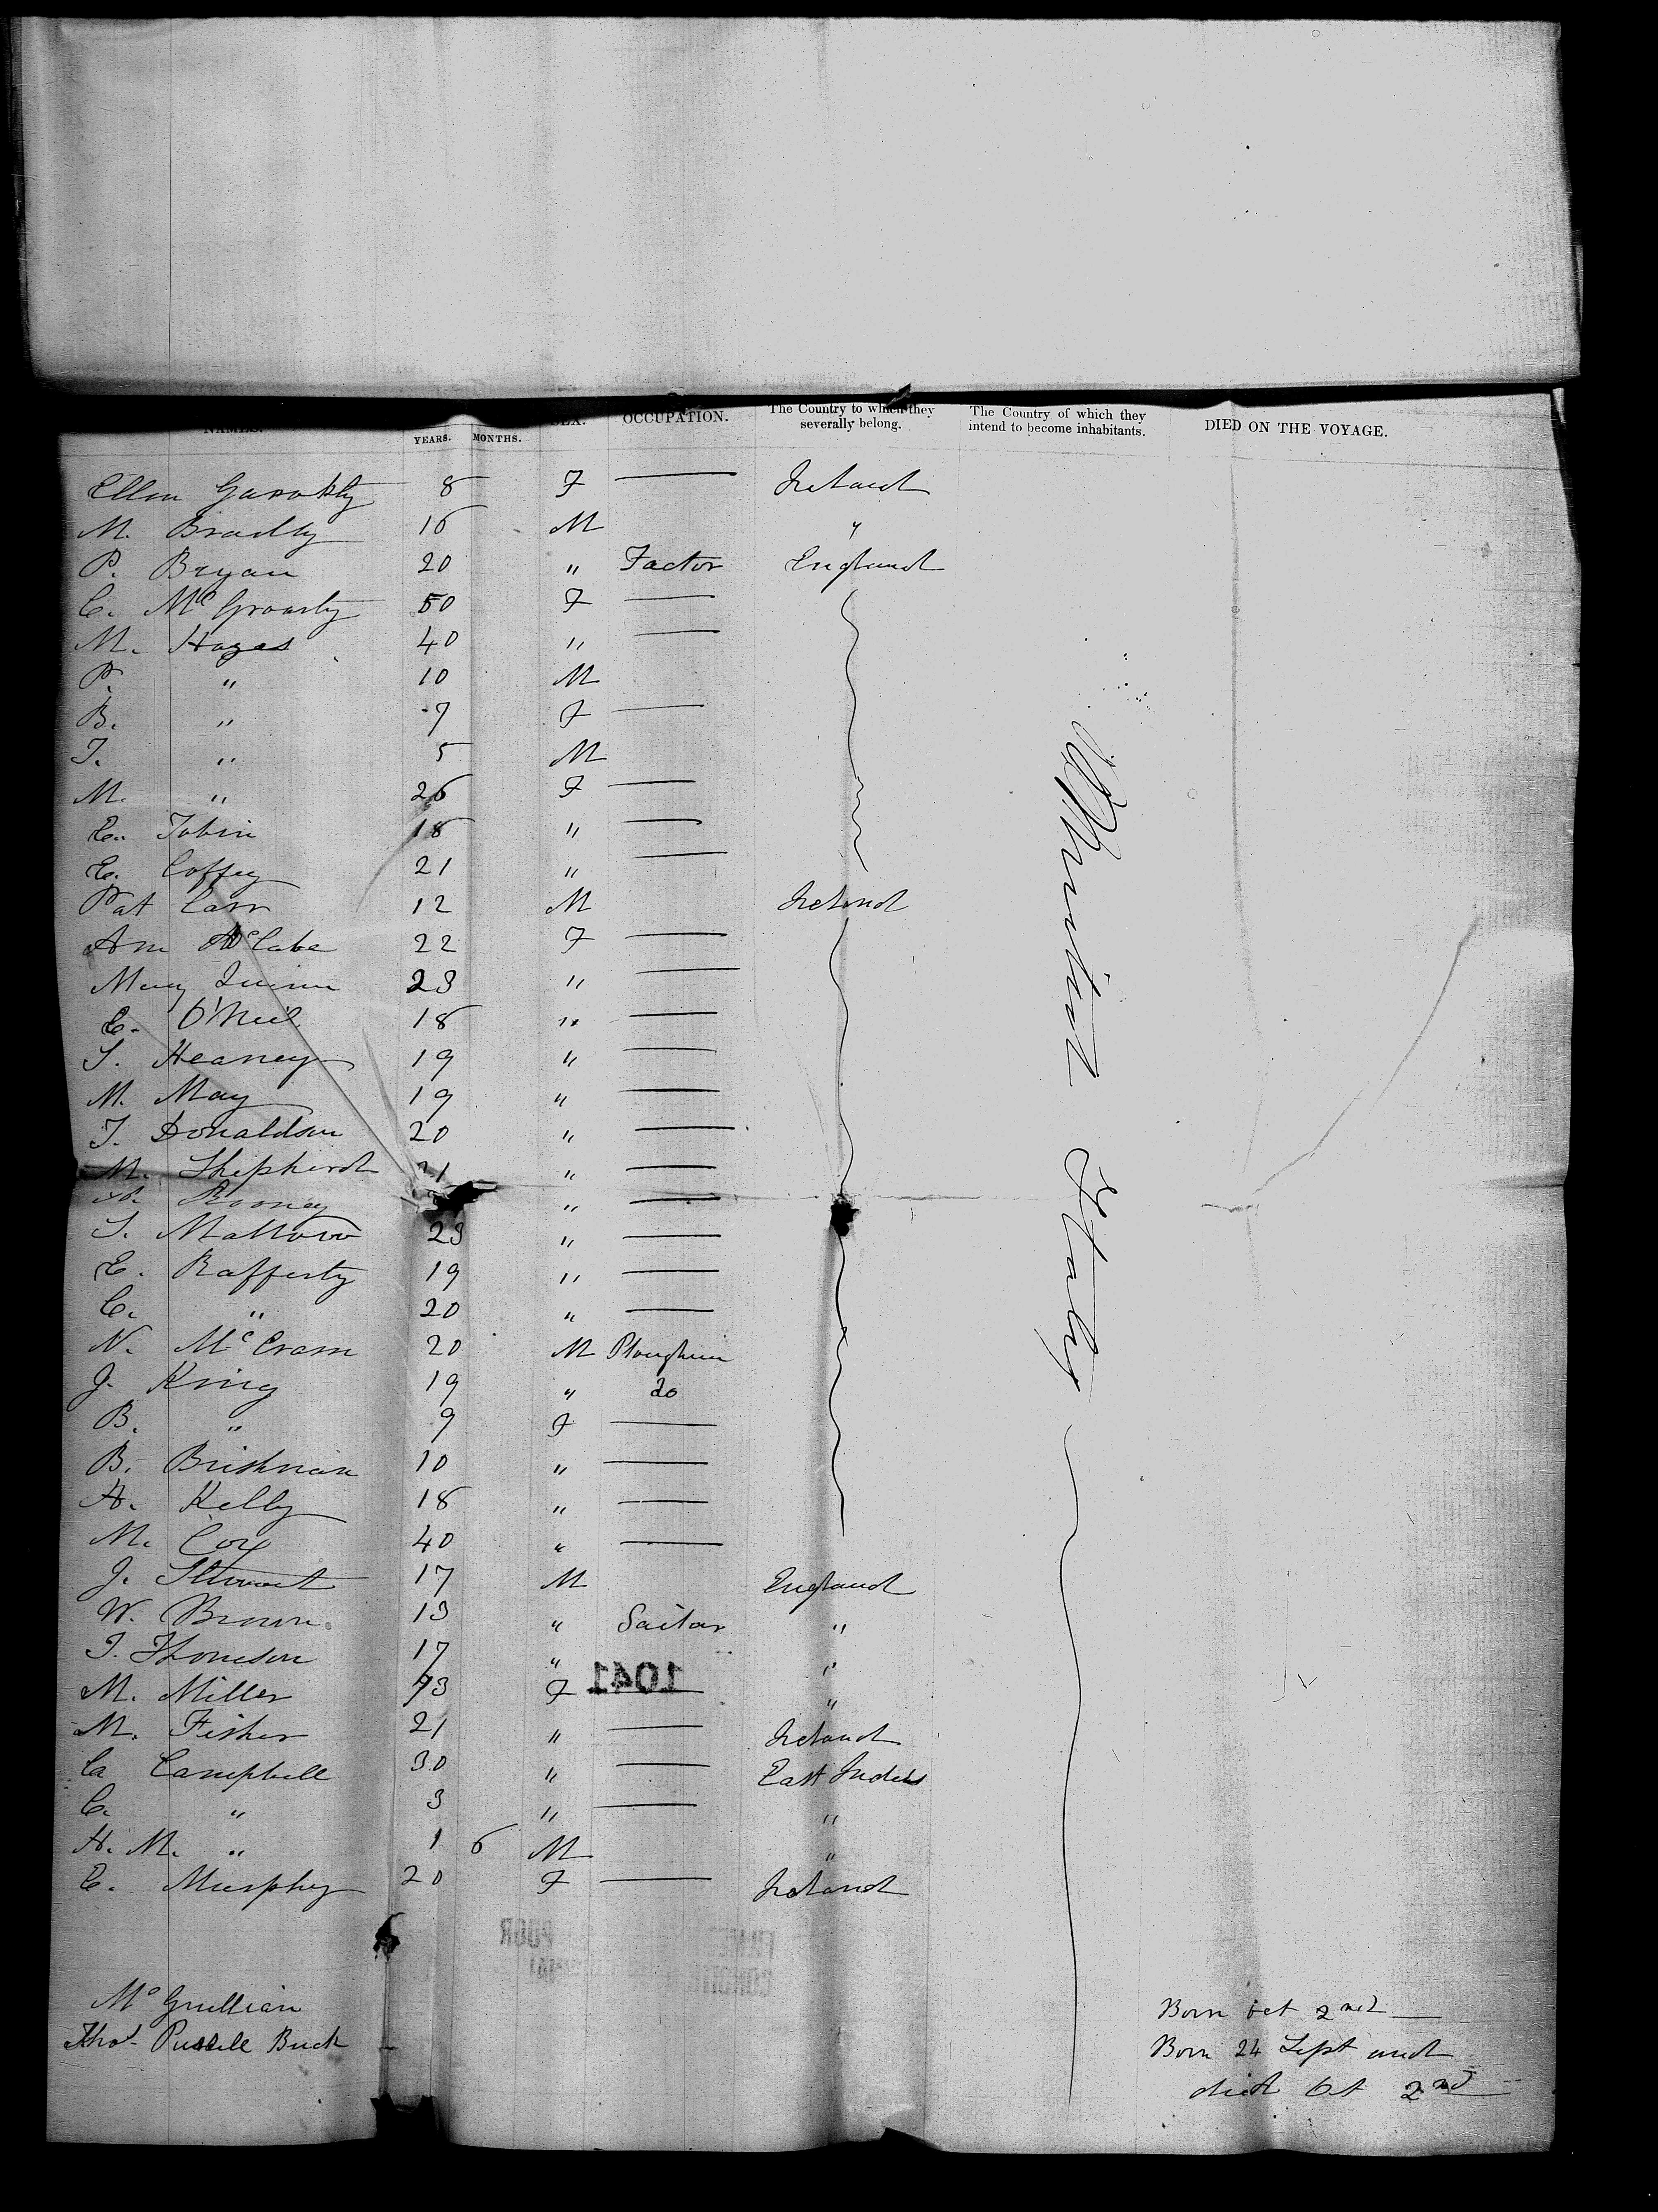 NAMES. YEARS. MONTHS. SEX. OCCUPATION. The Country to which they severally belong. The Country of which they intend to become inhabitants. DIED ON THE VOYAGE.
Ellen 8 F Ireland
M. Bradly 16 M "
P. Bryan 20 " Factor England
C. 50 F
M. Hayes 40 "
P. " 10 M
B. " 7 F
T. " 5 M
M. " 26 F
E. Tobin 18 "
E. Coffey 21 "
Pat Carr 12 M Ireland
Ann McCabe 22 F
Mary Quinn 23 "
E. O'Neil 18 "
S. Heaney 19 "
M. May 19 "
T. Donaldson 20 "
M. Shepherd 21 "
Rooney "
S. 23 "
E. Rafferty 19 "
C. " 20 "
N. 20 M
J. King 19 " do
B. " 9 F
B. 10 "
A. Kelly 18 "
M. Cox 40 "
J. Stewart 17 M England
W. Brown 13 " Sailor "
T. Thomson 17 " "
1041
M. Miller 73 F "
M. Fisher 21 " Ireland
Ca Campbell 30 " East Indies
C. " 3 " "
A. M. " 1 6 M "
E. Murphy 20 F Ireland
United States
Born Oct 2nd
Thos Buck Born 24 Sept and
died Oct 2nd